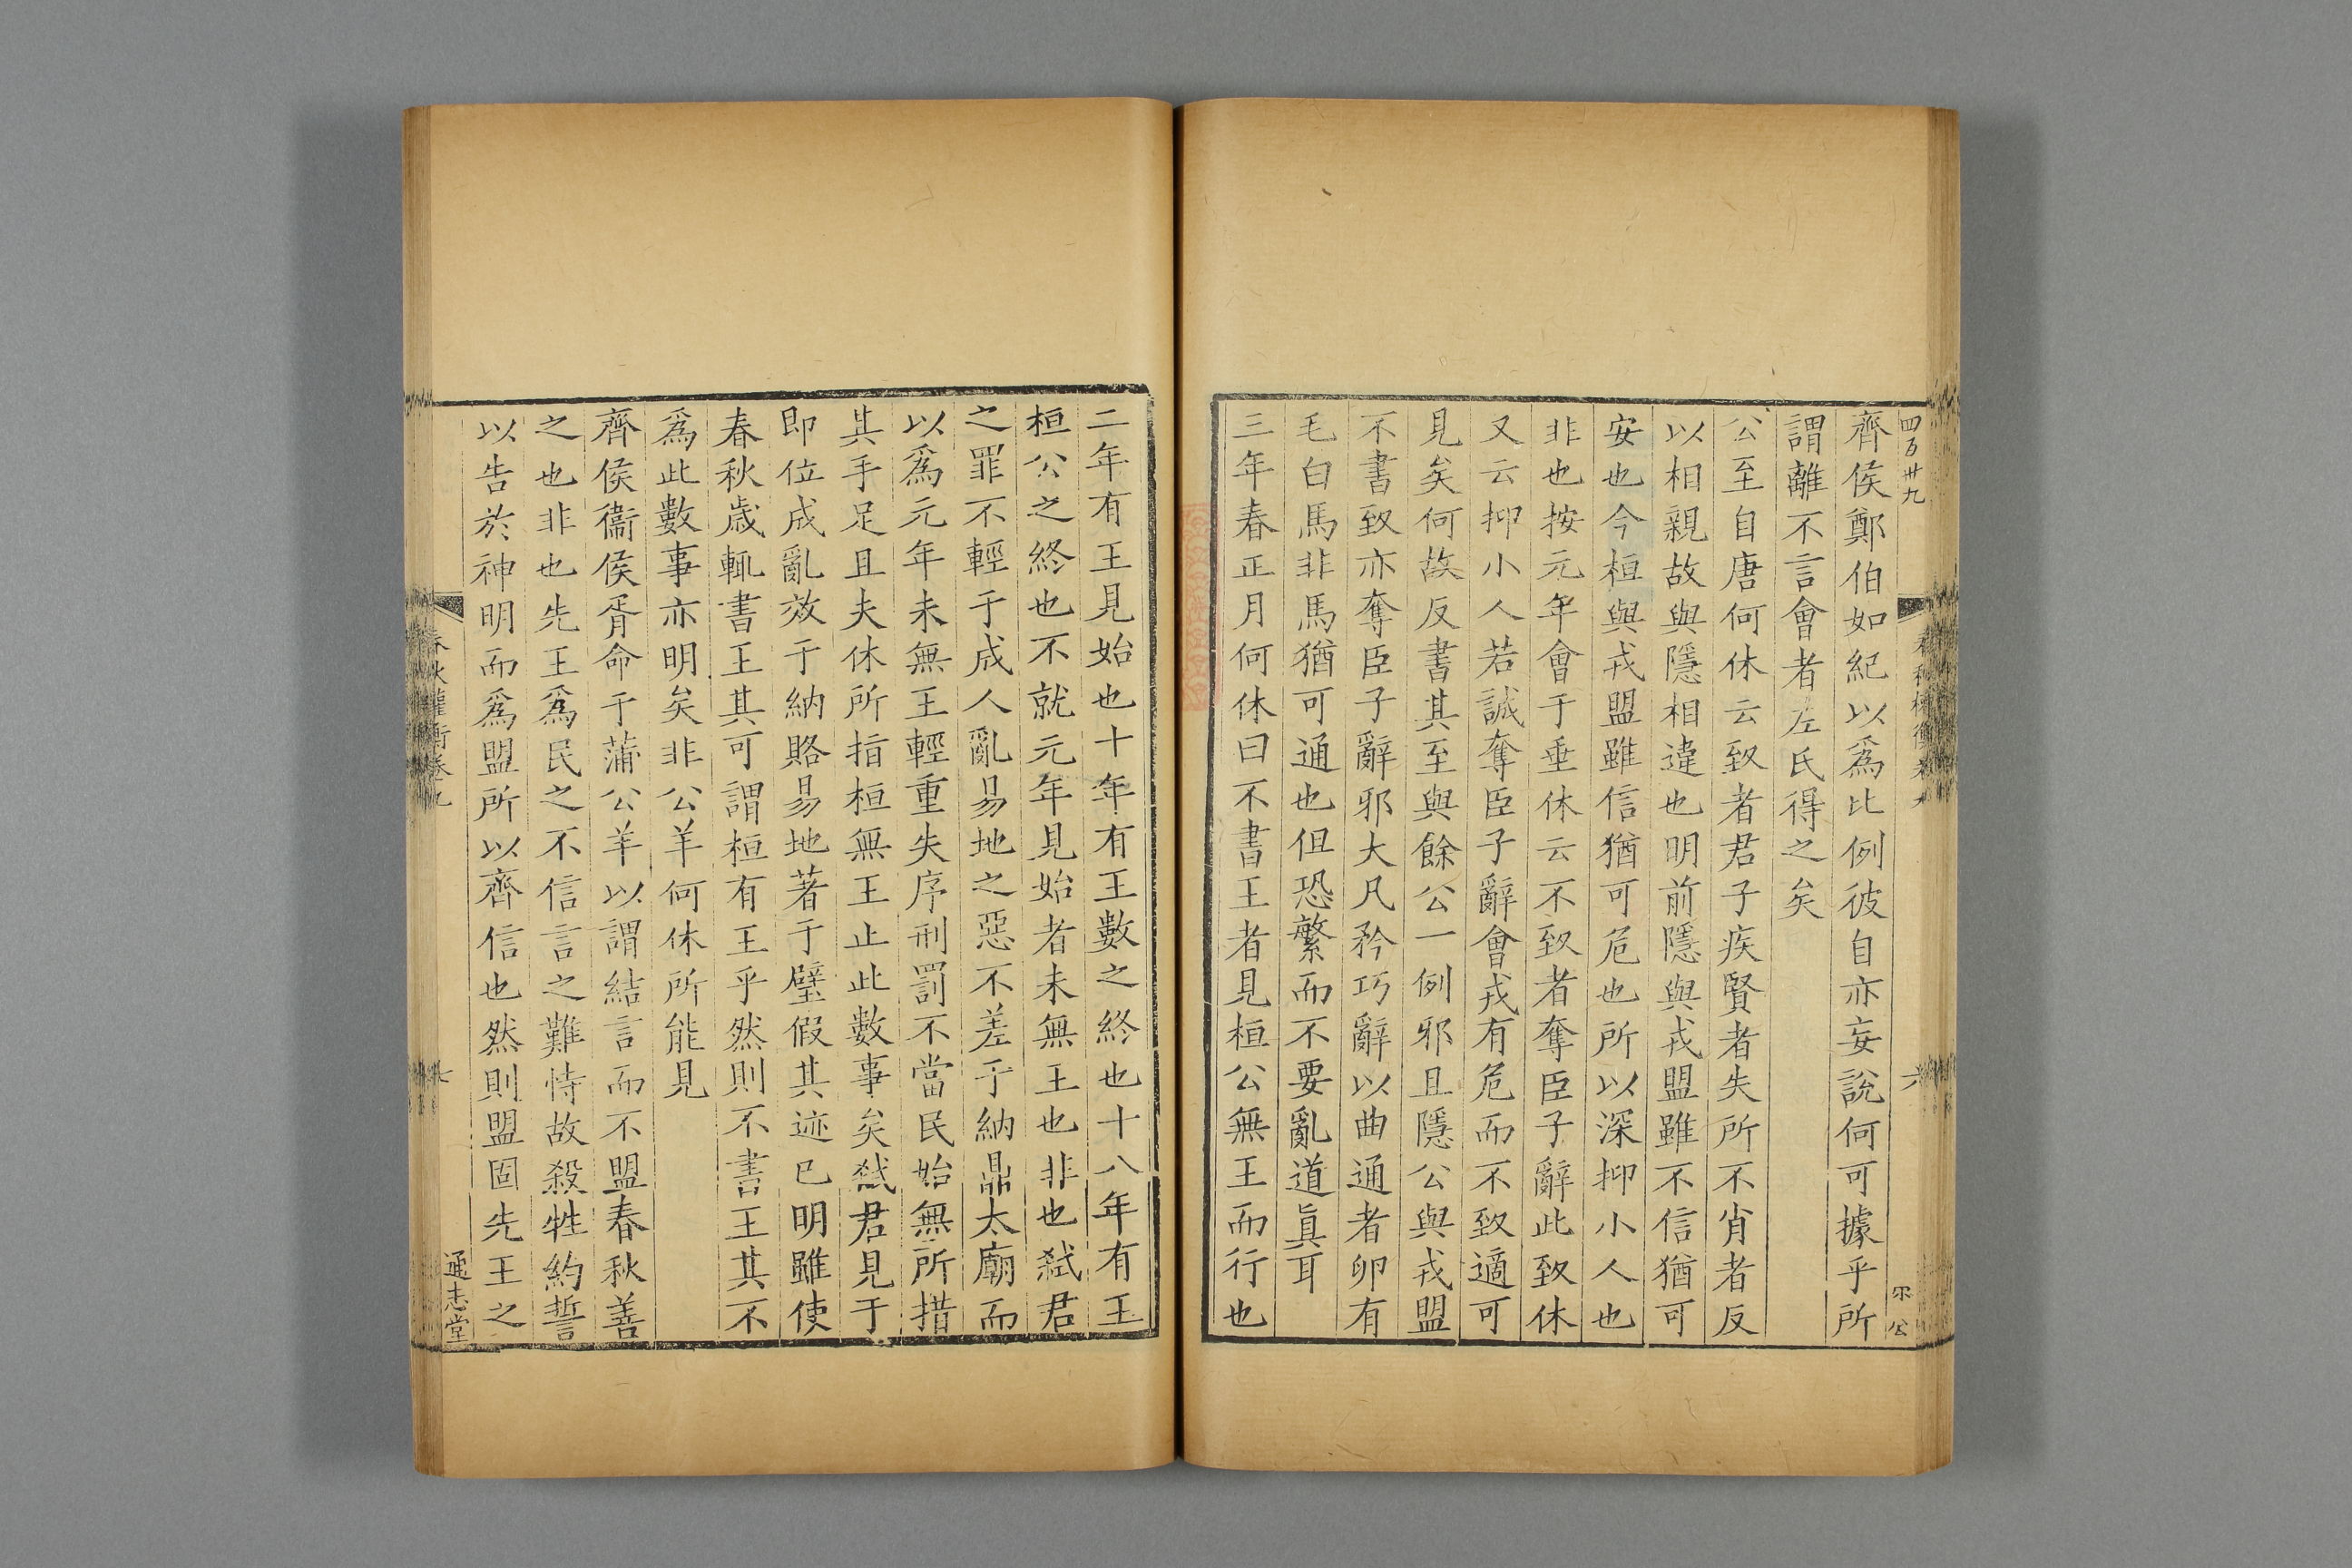 四百卅九
齊侯鄭伯如紀以爲比例彼自亦妄說何可據乎所
謂離不言會者左氏得之矣
公至自唐何休云致者君子疾賢者失所不肖者反
以相親故與隱相違也明前隱與戎盟雖不信猶可
安也今桓與戎盟雖信猶可危也所以深抑小人也
非也按元年會于垂休云不致者奪臣子辭此致休
又云抑小人若誠奪臣子辭會戎有危而不致適可
見矣何故反書其至與餘公一例邪且隱公與戎盟
不書致亦奪臣子辭邪大凡矜巧辭以曲通者卵有
毛白馬非馬猶可通也但恐繁而不要亂道眞耳
三年春正月何休曰不書王者見桓公無王而行也
二年有王見始也十年有王數之終也十八年有王
桓公之終也不就元年見始者未無王也非也弑君
之罪不輕于成人亂易地之惡不差于納鼎太廟而
以爲元年未無王輕重失序刑罰不當民始無所措
其手足且夫休所指桓無王止此數事矣弑君見于
即位成亂效于納賂易地著于璧假其迹已明雖使
春秋歲輒書王其可謂桓有王乎然則不書王其不
爲此數事亦明矣非公羊何休所能見
齊侯衞侯胥命于蒲公羊以謂結言而不盟春秋善
之也非也先王爲民之不信言之難恃故殺牲約誓
以告於神明而爲盟所以齊信也然則盟固先王之
春秋權衡卷九
七
通志堂